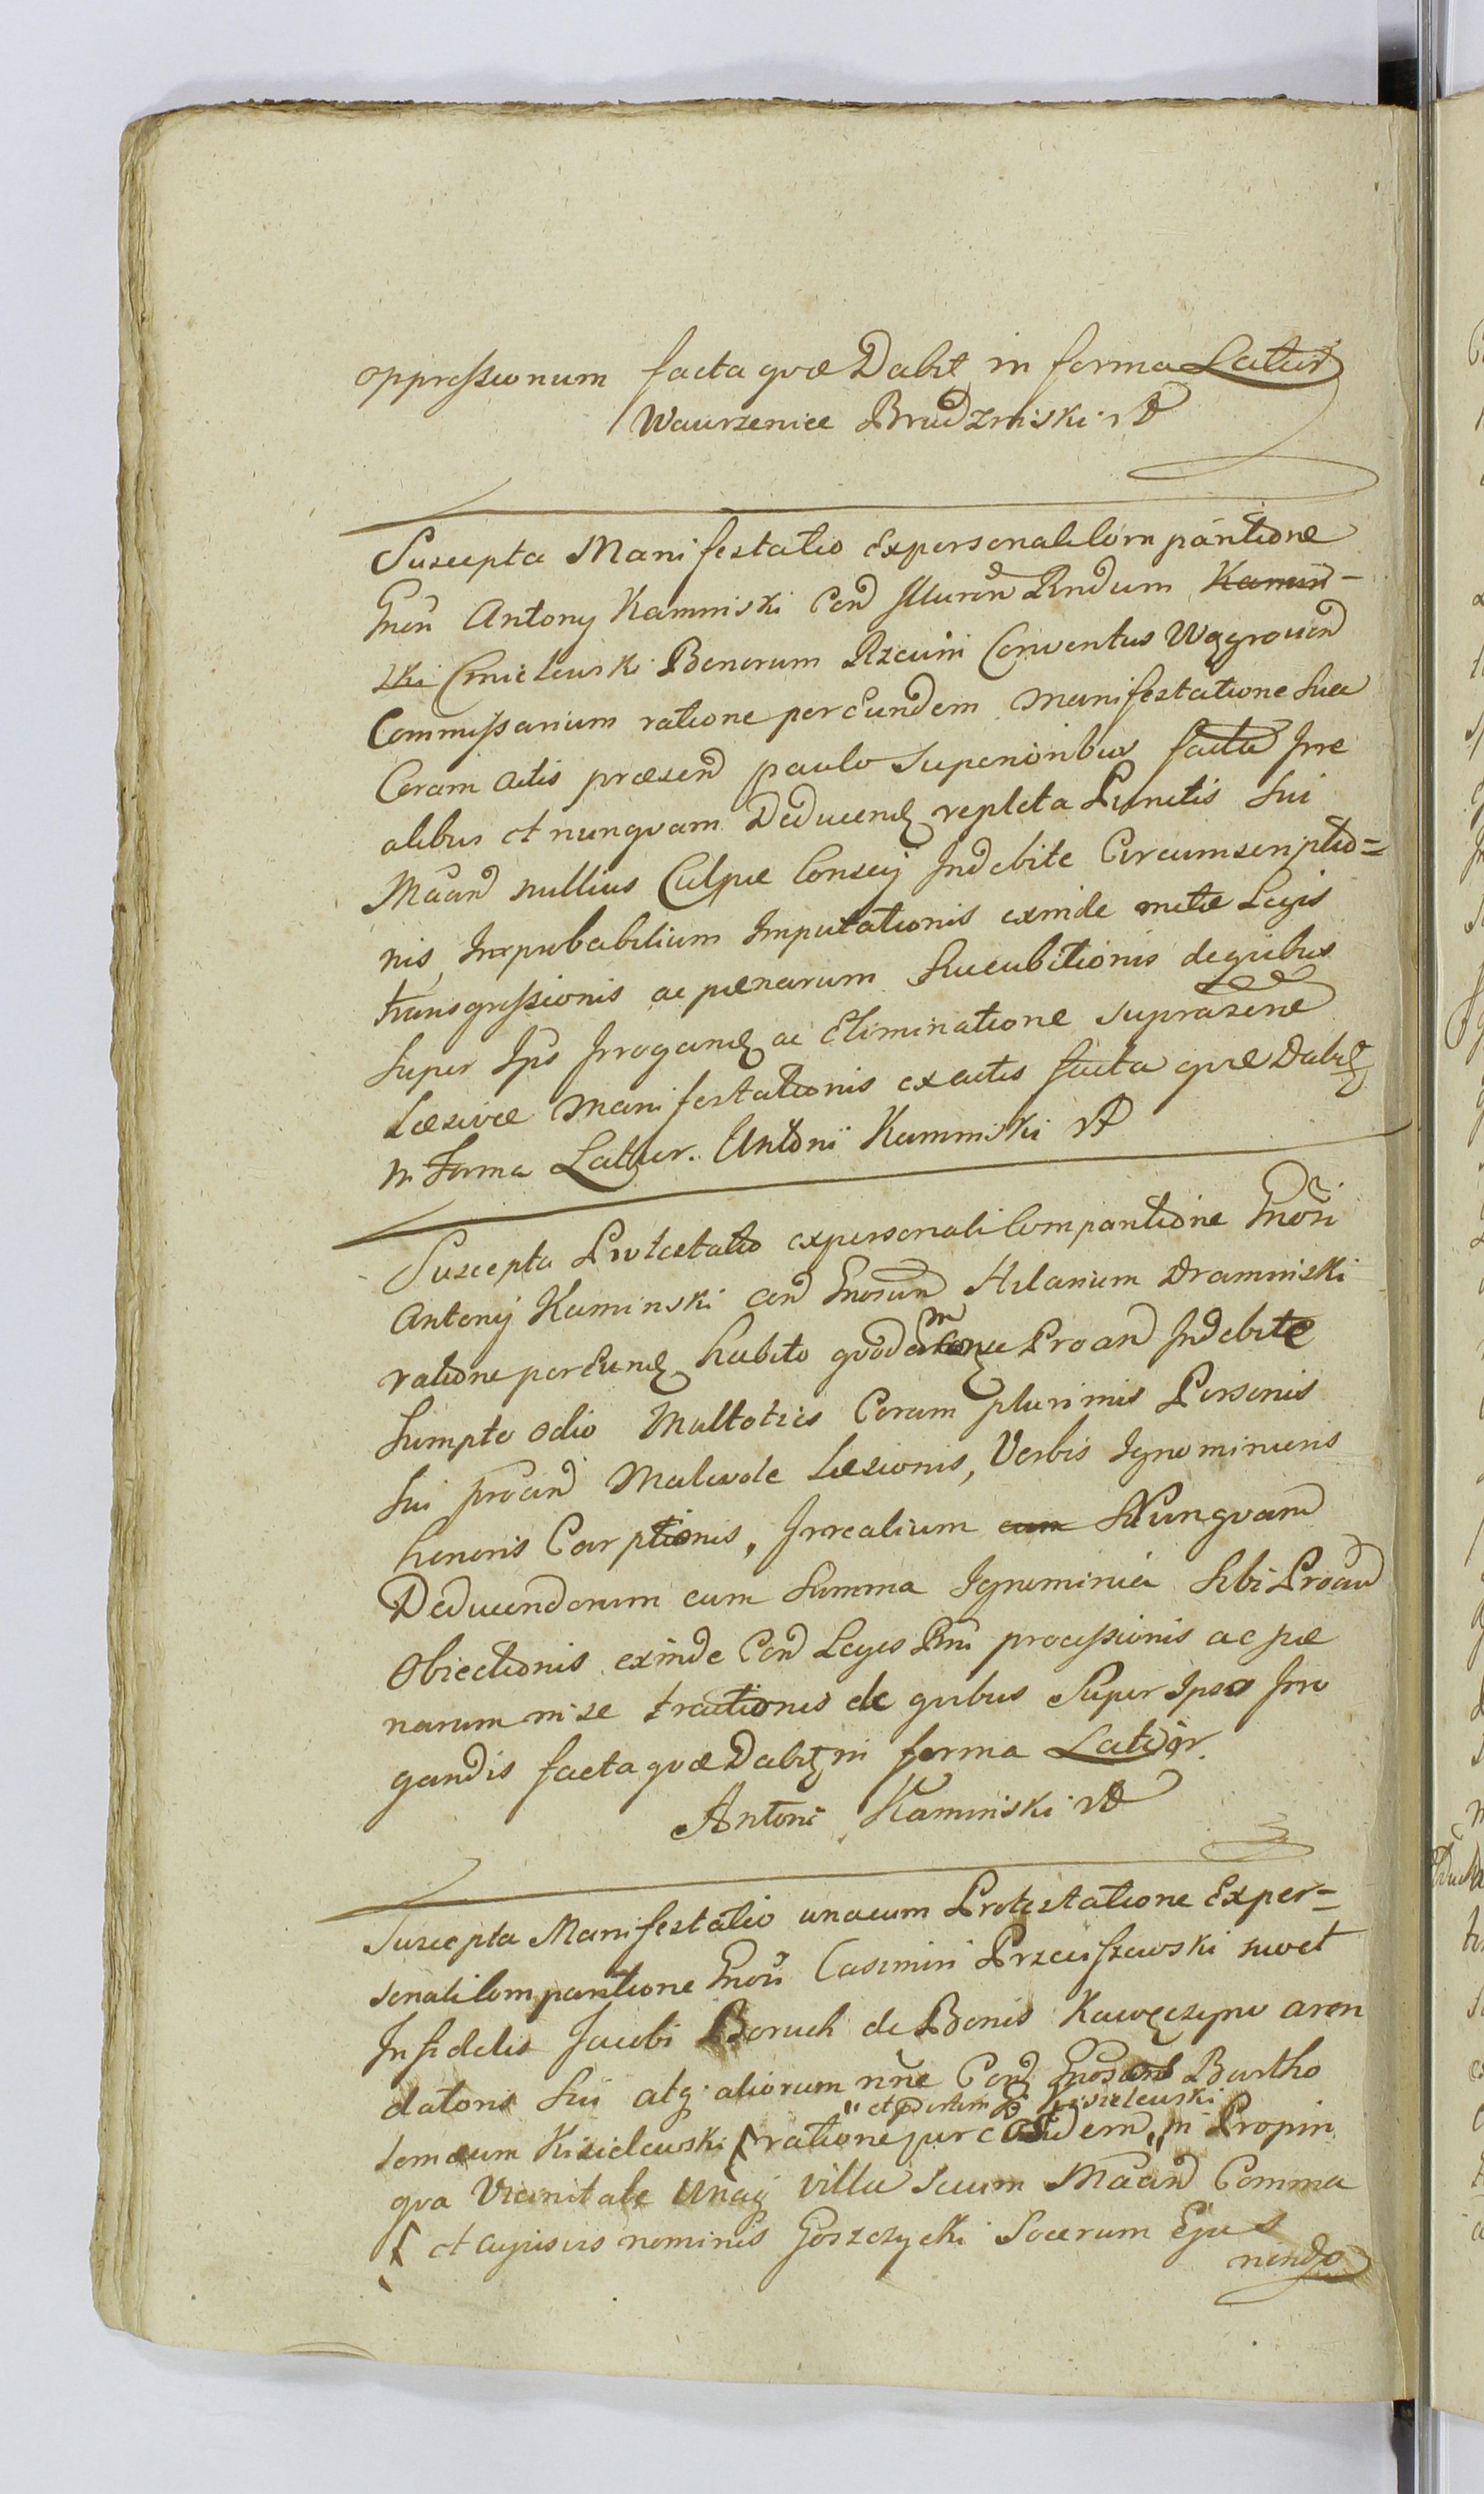 oppressionum facta quæ Dabit in forma Latior
Wawrzeniec Brudzinski
Suscepta Manifestatio Expersonali Comparitione
Gnosi Antony Kaminski Con Rndum Kamin-
ski Cmielewski Bonorum Conventus Wągrovien
Commissarium ratione per Eundem Manifestatione Sua
Coram Actis præsen paulo Superioribus facta Irre
alibus et nunquam Deducend repleta Punctis Sui
Maan nullius Culpæ Conscij Indebite Circumscriptio=
nis, Improbabilium Imputationis exinde metæ Legis
transgressionis ac pænarum Sucubitionis de quibus
Super Ipso Irrogand ac Eliminatione supræsene
Læsivæ Manifestationis ex actis facta quæ Dabit
in Forma Latior. Antoni Kaminski
Suscepta Protestatio expersonali Comparitione Gnosi
Antonij Kaminski con Gnosum Hilarium Draminski
ratione per Eund habito quodam Proan Indebite
Sumpto odio Multoties Coram plurimis Personis
Sui proan Malevole Læsionis, Verbis Ignominiosis
honoris Carptionis, Irrealium cum Nunquam
Deducendorum cum Summa Ignominia Sibi Proan
Obiectionis exinde Con Leges Rni processionis ac pæ
narum in se tractionis de quibus Super Ipso Irro
gandis facta quæ Dabit in forma Latior.
Antoni Kaminski
Suscepta Manifestatio unacum Protestatione Exper=
sonali Comparitione Gnosi Casimiri Przeciszewski suo et
Infidelis Jacobi Boruch de Bonis Kawęczyno aren
datoris Sui atq aliorum nne Con Gnosum Bartho
" et Kisielewski
lomæum Kisielewski ratione per eosdem " in Propin
qua Vicinitate Unaq villa secum Maan Comma
et cujusvis nominis Goszczycki Socerum Ejus
nendo